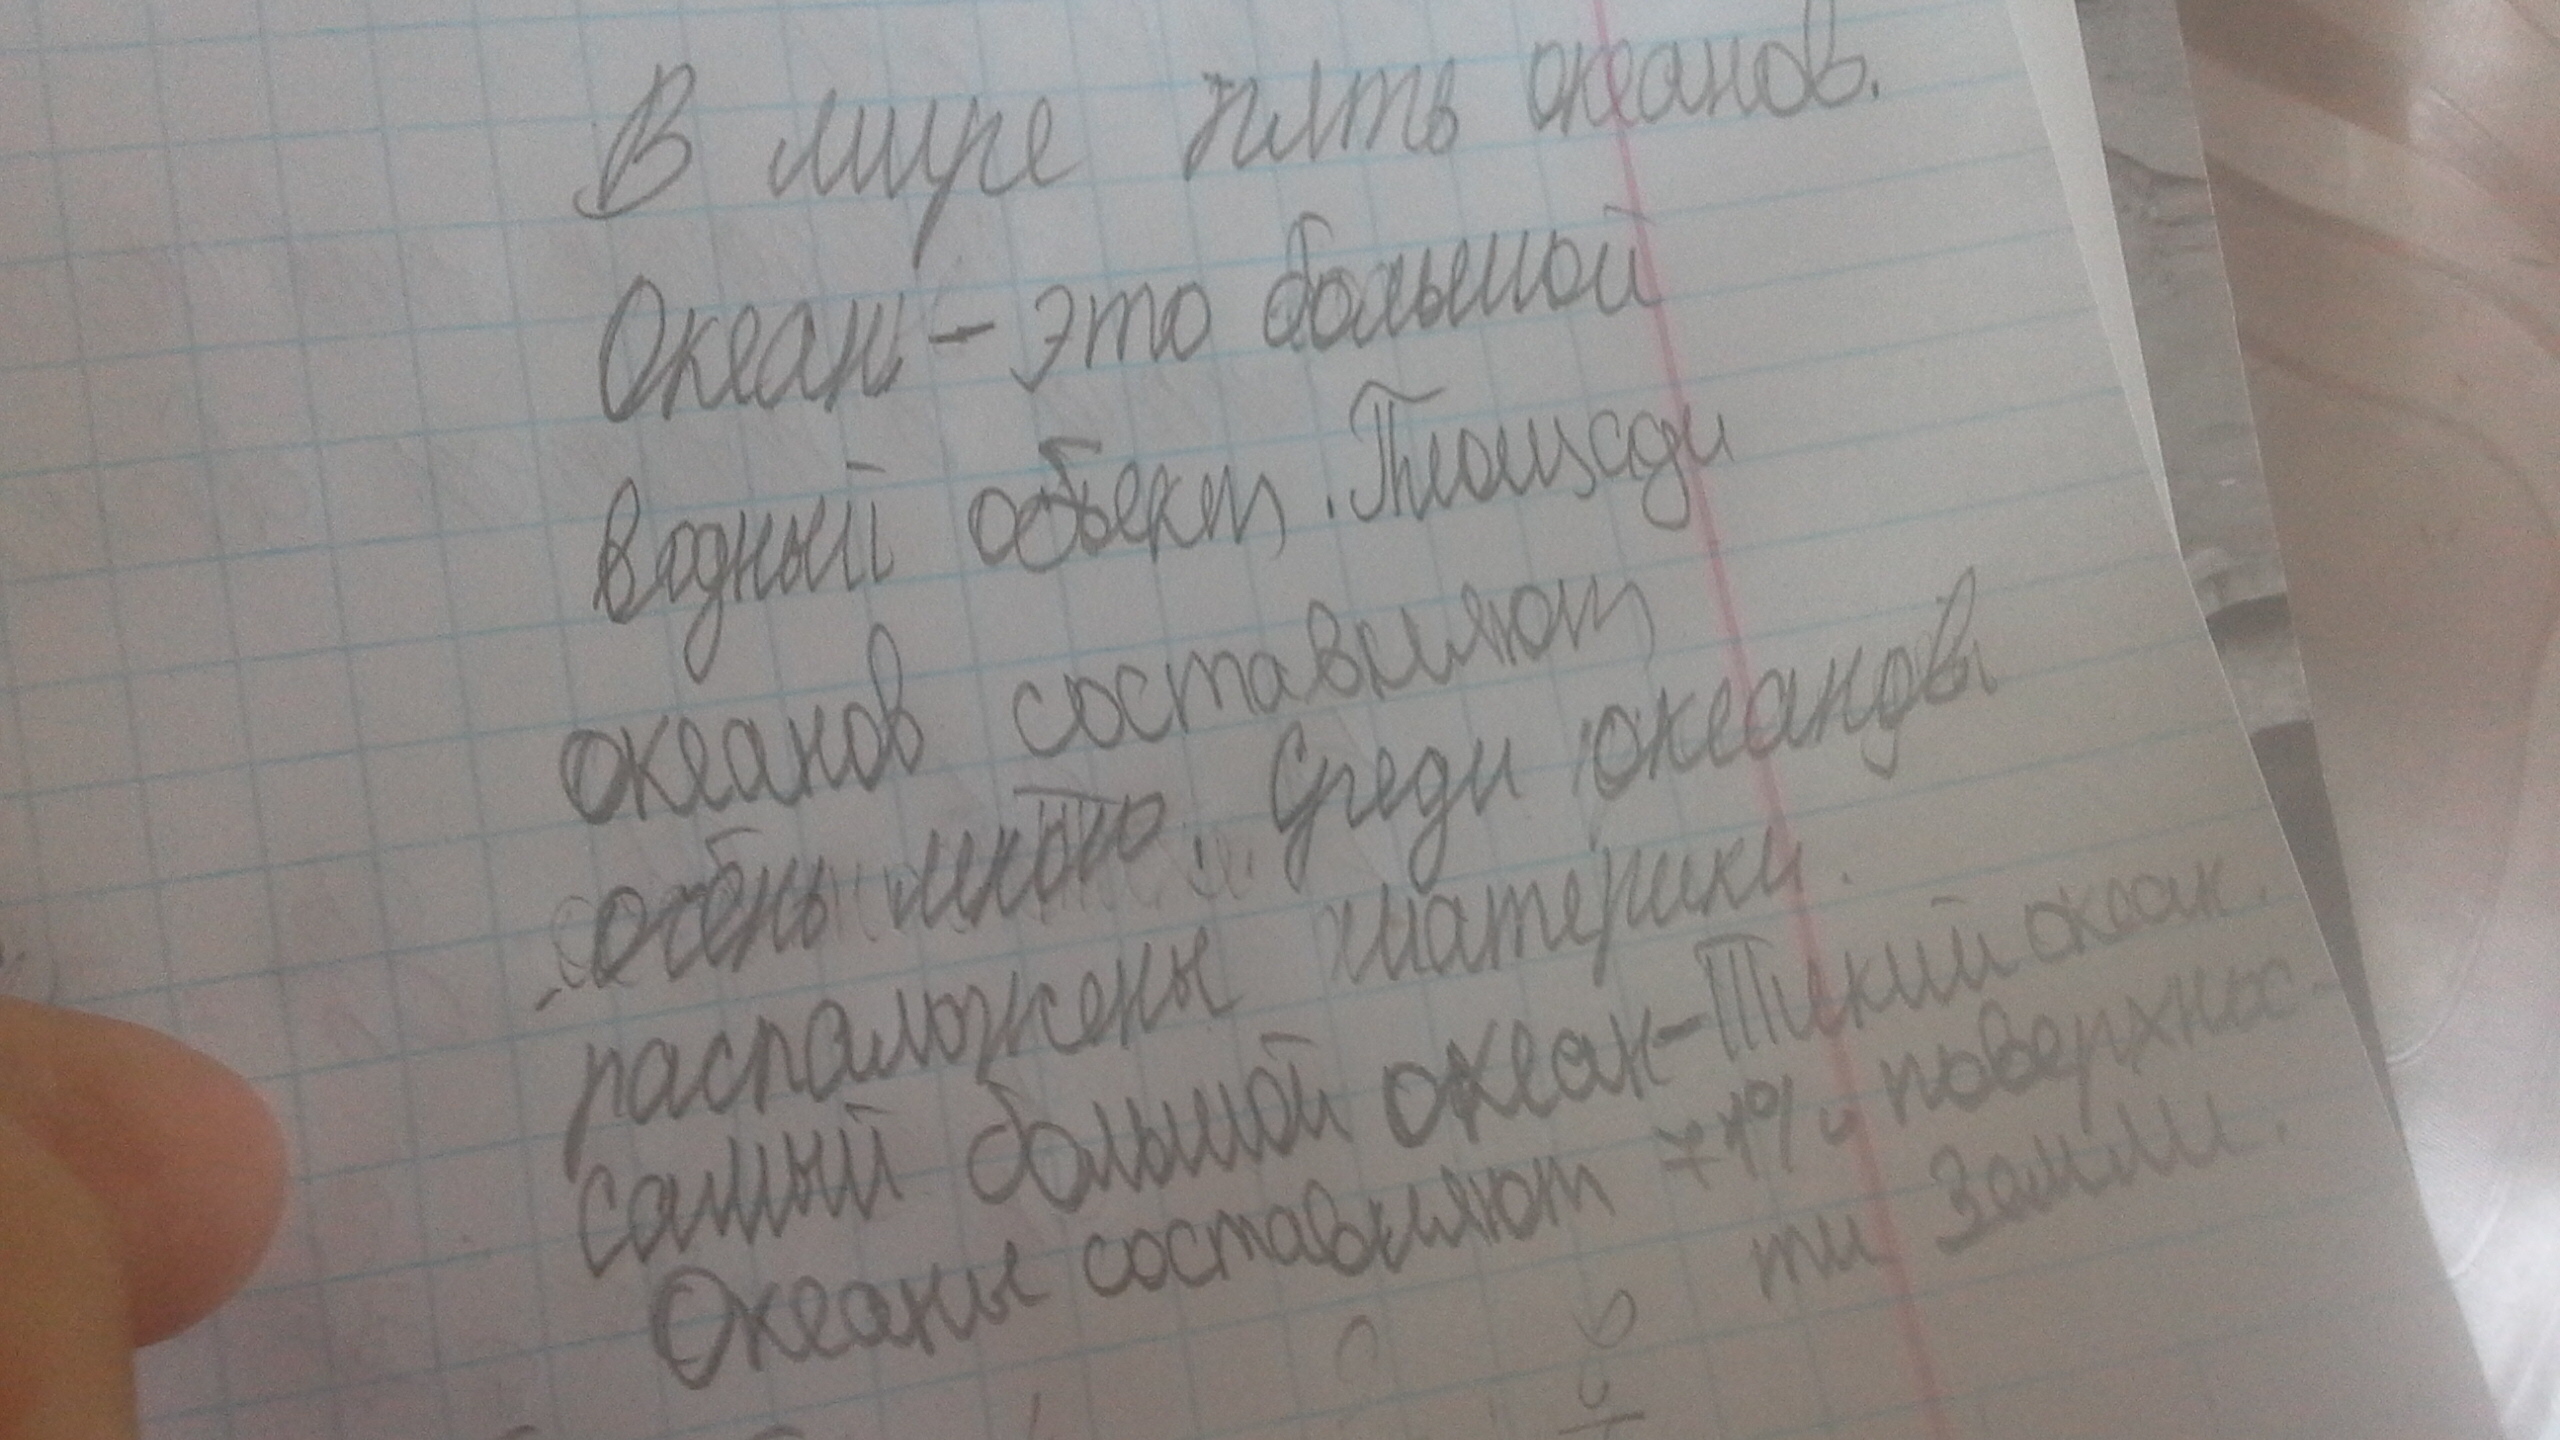 В мире пять океанов.
Океан - это большой
водный объект. Площади
океанов составляют
очень много. Среди океанов
распаложены материки.
самый большой океан-Тихий океан.
Океаны составляют 71% поверхнос-
ти Земли.